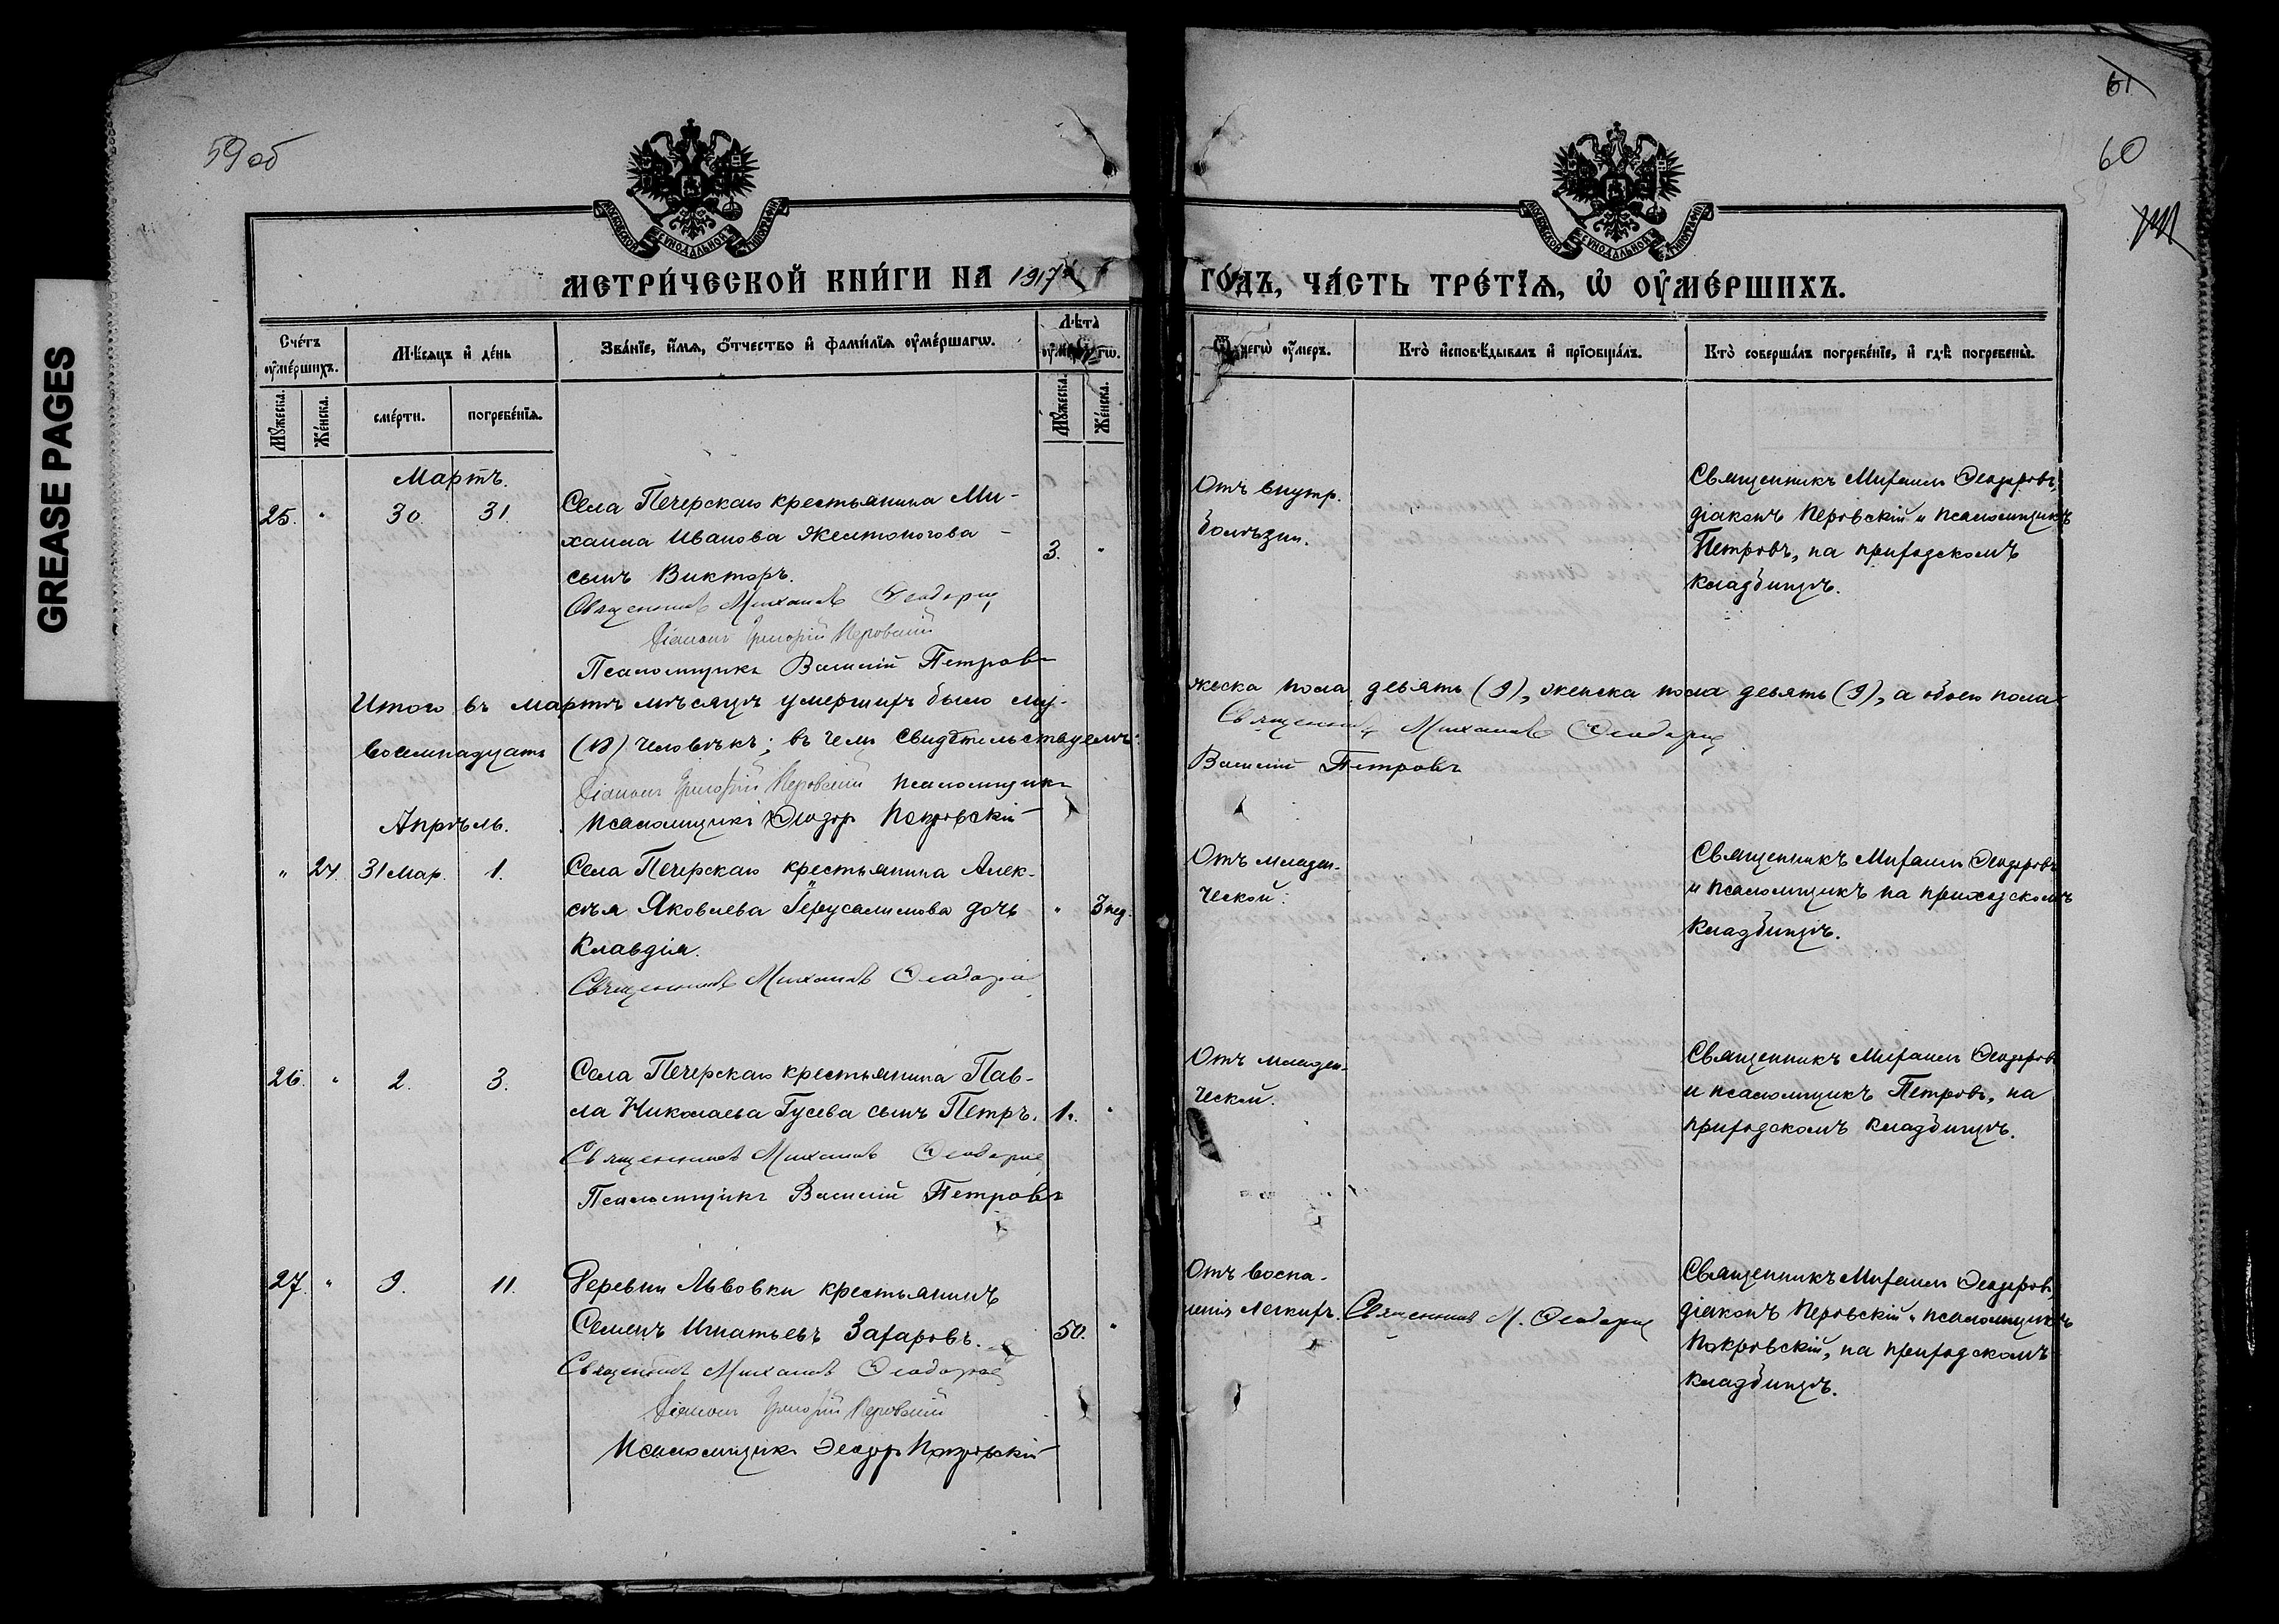 GREASE PAGES
59 об
61
60
МОСКОВСКОЙ СѴНОДАЛЬНОЙ ТИПОГРАФІИ
МОСКОВСКОЙ СѴНОДАЛЬНОЙ ТИПОГРАФІИ
МЕТРИ́ЧЕСКОЙ КНИ́ГИ НА 1917
ГО́ДЪ, ЧА́СТЬ ТРЕ́ТЇѦ, Ѡ ОУМЕ́РШИХЪ.
Сче́тъ оумє́ршихъ.
Мѣ́сяцъ и де́нь
Зва́нїе, и́мѧ, о́тчество и фами́лїѧ оуме́ршагѡ.
Лѣта̀
Мꙋжеска.
Же́нска.
сме́рти.
погребе́нїѧ.
Мꙋжеска.
Же́нска.
Ѿ чегѡ̀ оу́меръ.
Кто̀ исповѣ́дывалъ и прїѡбща́лъ.
Кто̀ соверша́лъ погребе́нїе, и гдѣ̀ погребены̀.
Мартъ.
25. " 30. 31. Села Печерскаго крестьянина Ми-
хаила Иванова Желтоногова
сынъ Викторъ. 3. "
Священникъ Михаилъ Ѳеодоровъ
Діаконъ Григорій Перовскій
Псаломщикъ Василій Петровъ
Отъ внутр.
болѣзни.
Священникъ Михаилъ Ѳеодоровъ,
діаконъ Перовскій и псаломщикъ
Петровъ, на приходскомъ
кладбищѣ.
Итого въ мартѣ мѣсяцѣ умершихъ было му-
жеска пола девять (9), женска пола девять (9), а обоего пола
восемнадцать (18) человѣкъ; въ чемъ свидѣтельствуемъ:
Священникъ Михаилъ Ѳеодоровъ
Діаконъ Григорій Перовскій псаломщикъ
Василій Петровъ
псаломщикъ Ѳеодоръ Покровскій
Апрѣль.
" 24. 31 Мар. 1. Села Печерскаго крестьянина Алек-
сѣя Яковлева Іерусалимова дочь " 3 нед.
Клавдія.
Священникъ Михаилъ Ѳеодоровъ
Отъ младен-
ческой.
Священникъ Михаилъ Ѳеодоровъ
и псаломщикъ на приходскомъ
кладбищѣ.
26. " 2. 3. Села Печерскаго крестьянина Пав-
ла Николаева Гусева сынъ Петръ. 1. "
Священникъ Михаилъ Ѳеодоровъ
Псаломщикъ Василій Петровъ
Отъ младен-
ческой.
Священникъ Михаилъ Ѳеодоровъ
и псаломщикъ Петровъ, на
приходскомъ кладбищѣ.
27. " 9. 11. Деревни Львовки крестьянинъ
Семенъ Игнатьевъ Захаровъ. 50. "
Священникъ Михаилъ Ѳеодоровъ
Діаконъ Григорій Перовскій
Псаломщикъ Ѳеодоръ Покровскій
Отъ воспа-
ленія легкихъ.
Священникъ М. Ѳеодоровъ
Священникъ Михаилъ Ѳеодоровъ,
діаконъ Перовскій и псаломщикъ
Покровскій, на приходскомъ
кладбищѣ.